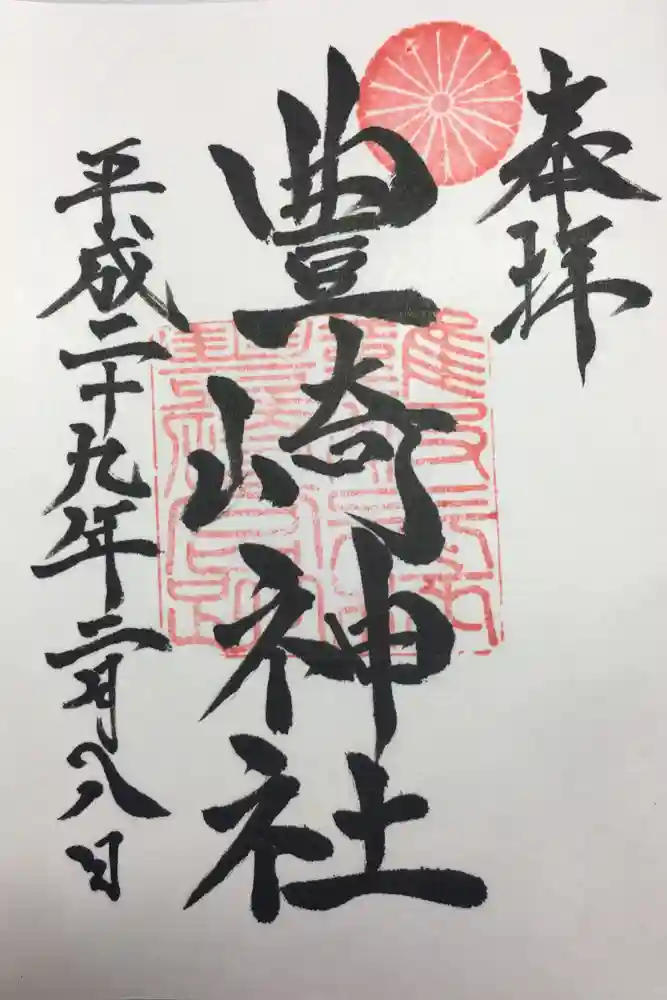 奉拝
豊崎神社
平成二十九年二月八日